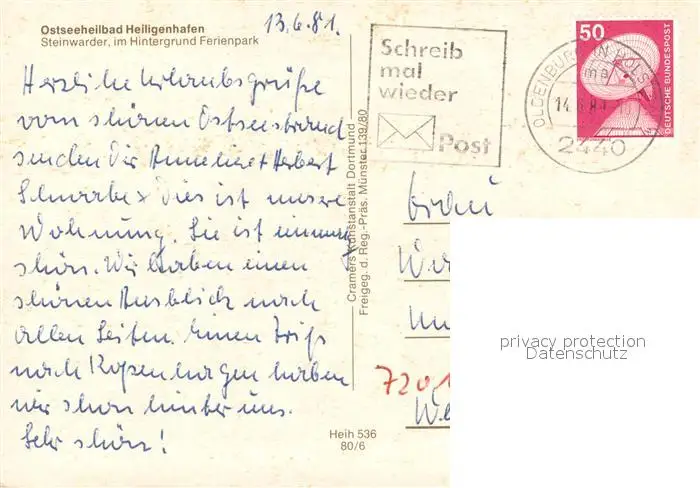 Ostseeheilbad Heiligenhafen
Steinwarder, im Hintergrund Ferienpark
13.6.81.
Herzliche Urlaubsgrüße
vom schönen Ostseestrand
senden Dir Anneliese + Herbert
Schwabe x Dies ist unsere
Wohnung. Sie ist
schön. Wir haben einen
schönen Ausblick nach
allen Seiten. Einen Trip
nach Kopenhagen haben
wir schon hinter uns.
Sehr schön!
Cramers Kunstanstalt Dortmund
Freigeg. d. Reg.-Präs. Münster 139/80
Heih 536
80/6
Schreib
mal
wieder
Post
OLDENBURG IN HOLST
ma
14.6.81
2440
50
DEUTSCHE BUNDESPOST
Frau
7201
privacy protection
Datenschutz